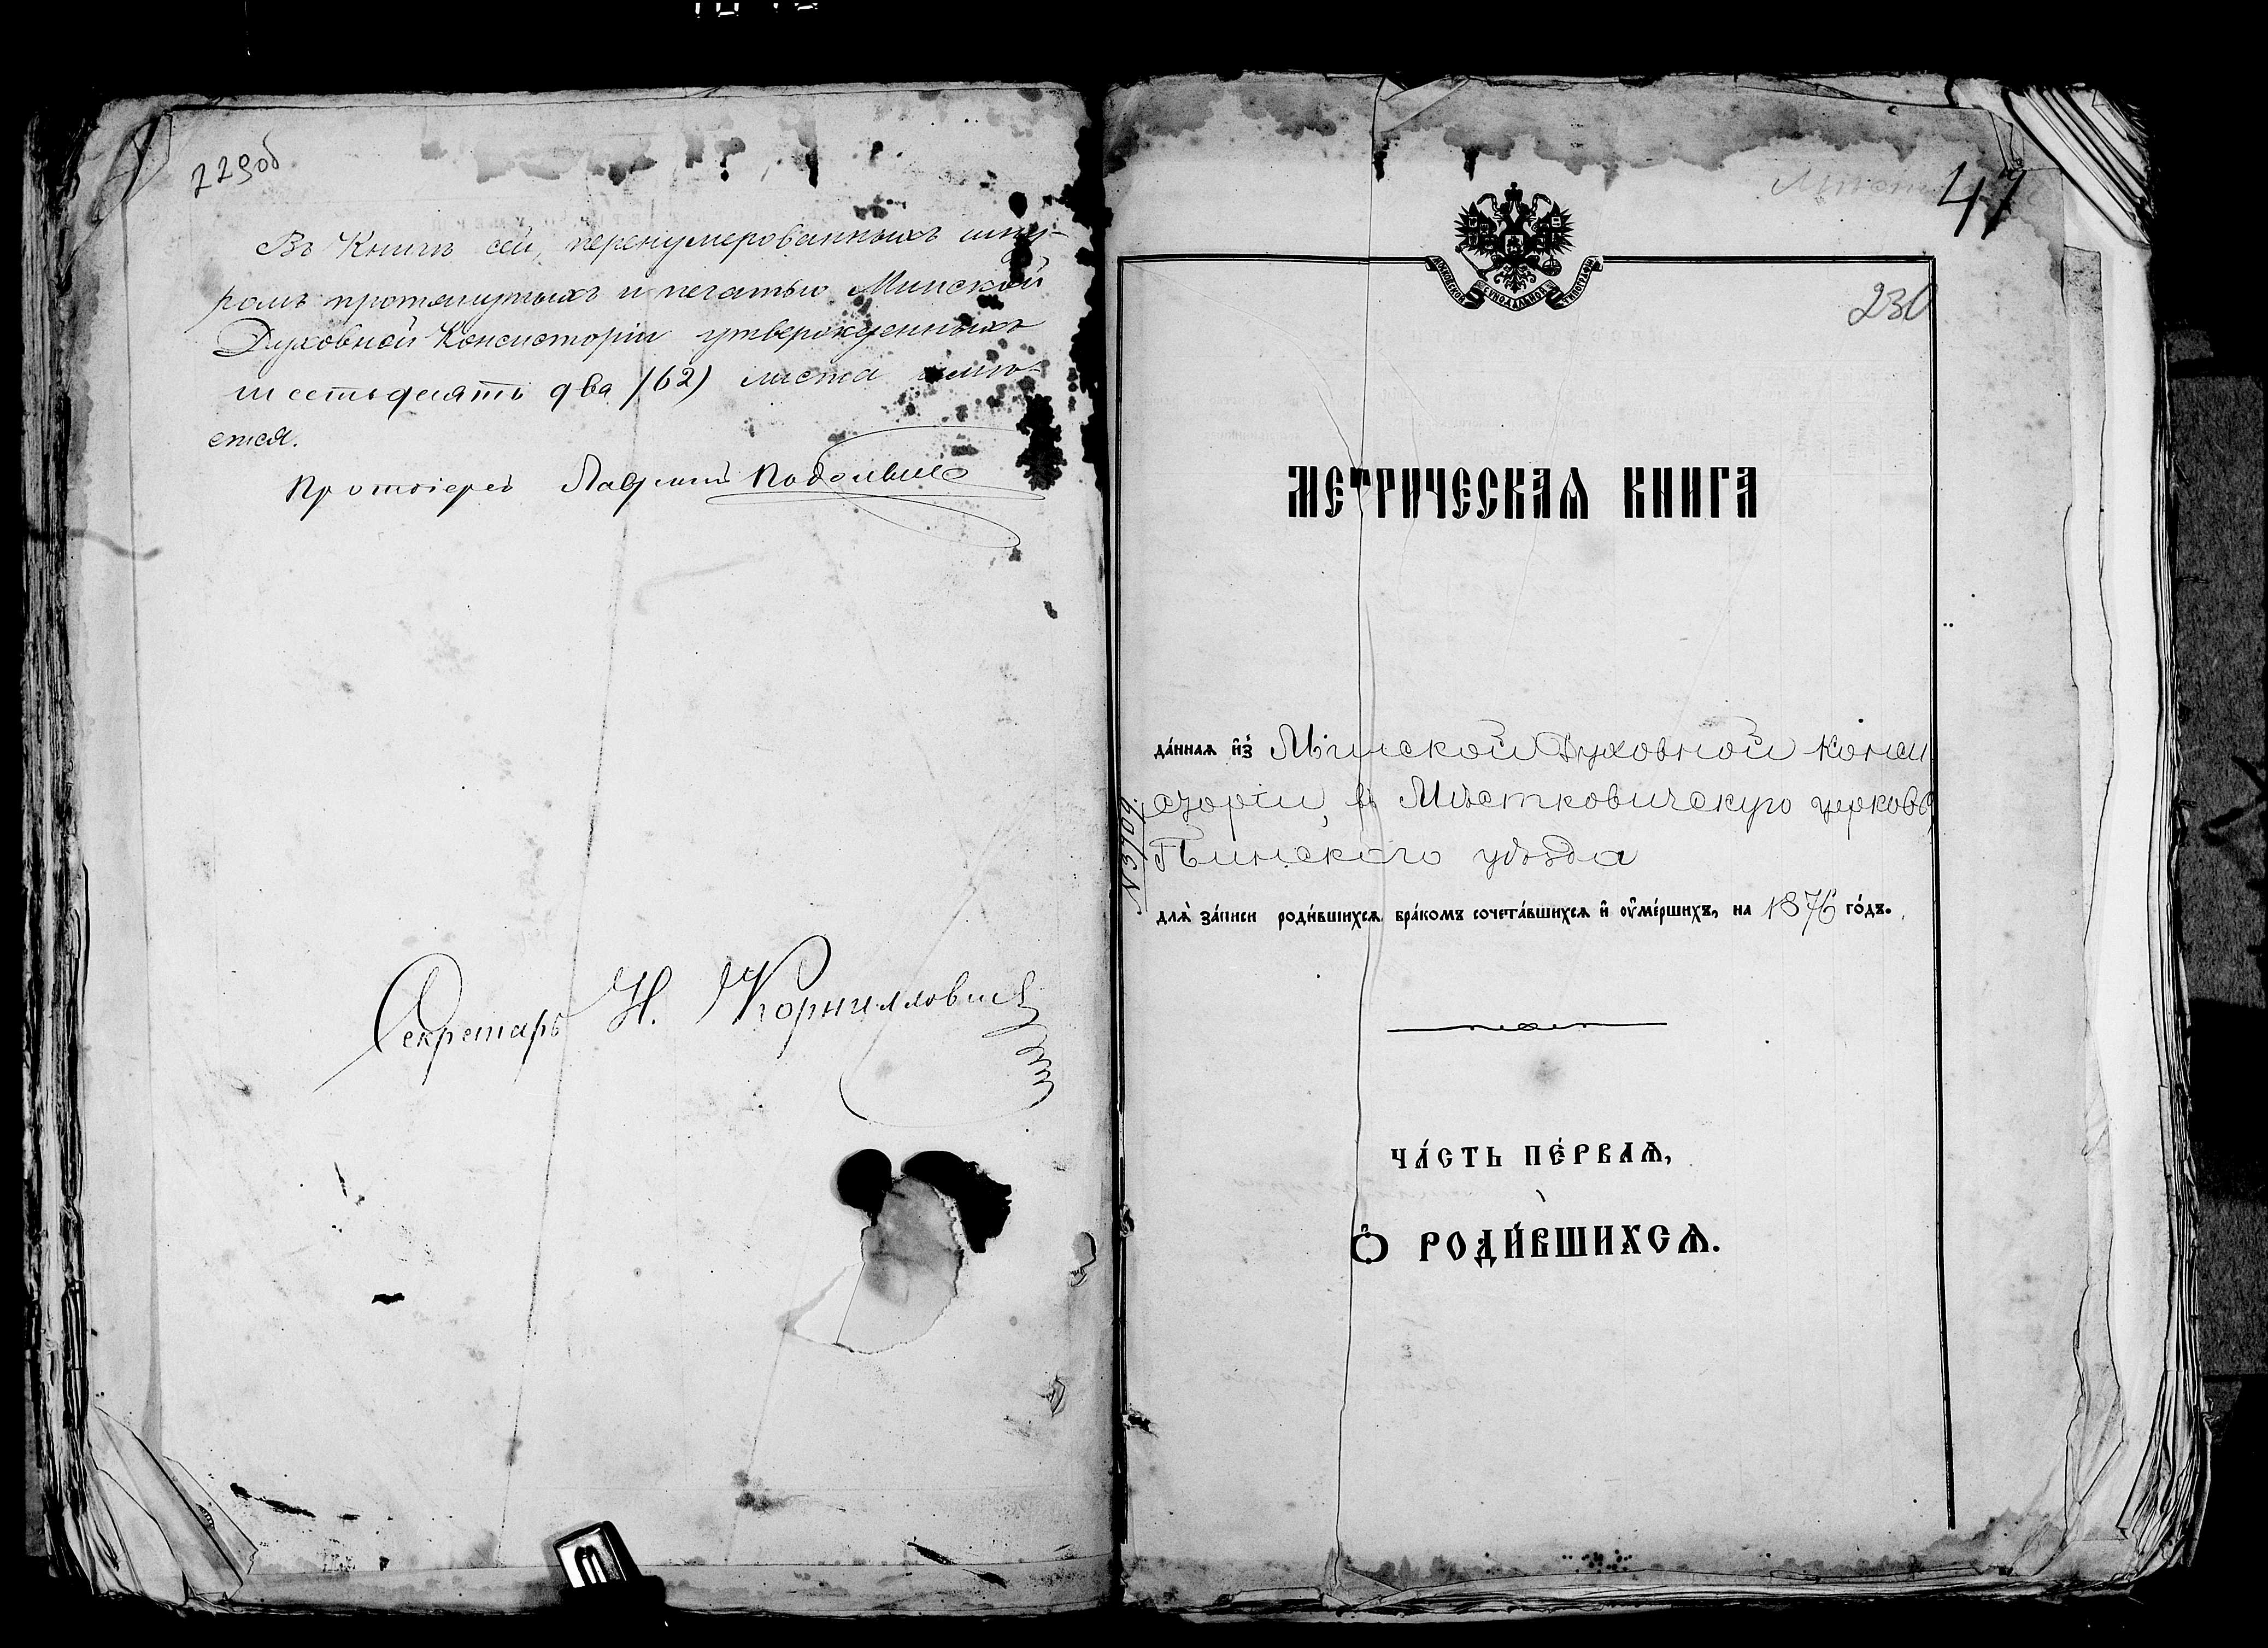 229об
Въ Книгѣ сей, перенумерованныхъ шну-
ромъ протянутыхъ и печатью Минской
Духовной Консисторіи утвержденныхъ
шестьдесятъ два (62) листа имѣ-
ется.
Протоіерей
Секретарь Н. Корнилловичъ
47
230
МОСКОВСКОЙ СѴНОДАЛЬНОЙ ТИПОГРАФІИ
МЕТРИЧЕСКАѦ КНИГА
да́ннаѧ и҆з̾ Минской Духовной Конси
сторіи, въ Мѣстковичскую церковь
Пинскаго уѣзда
№ 3909
длѧ̀ за́писи роди́вшихсѧ, бра́комъ сочета́вшихсѧ и҆ ᲂу҆ме́ршихъ, на 1876 го́дъ.
ЧА́СТЬ ПЕ́РВАѦ,
Ѽ РОДИ́ВШИХСѦ.